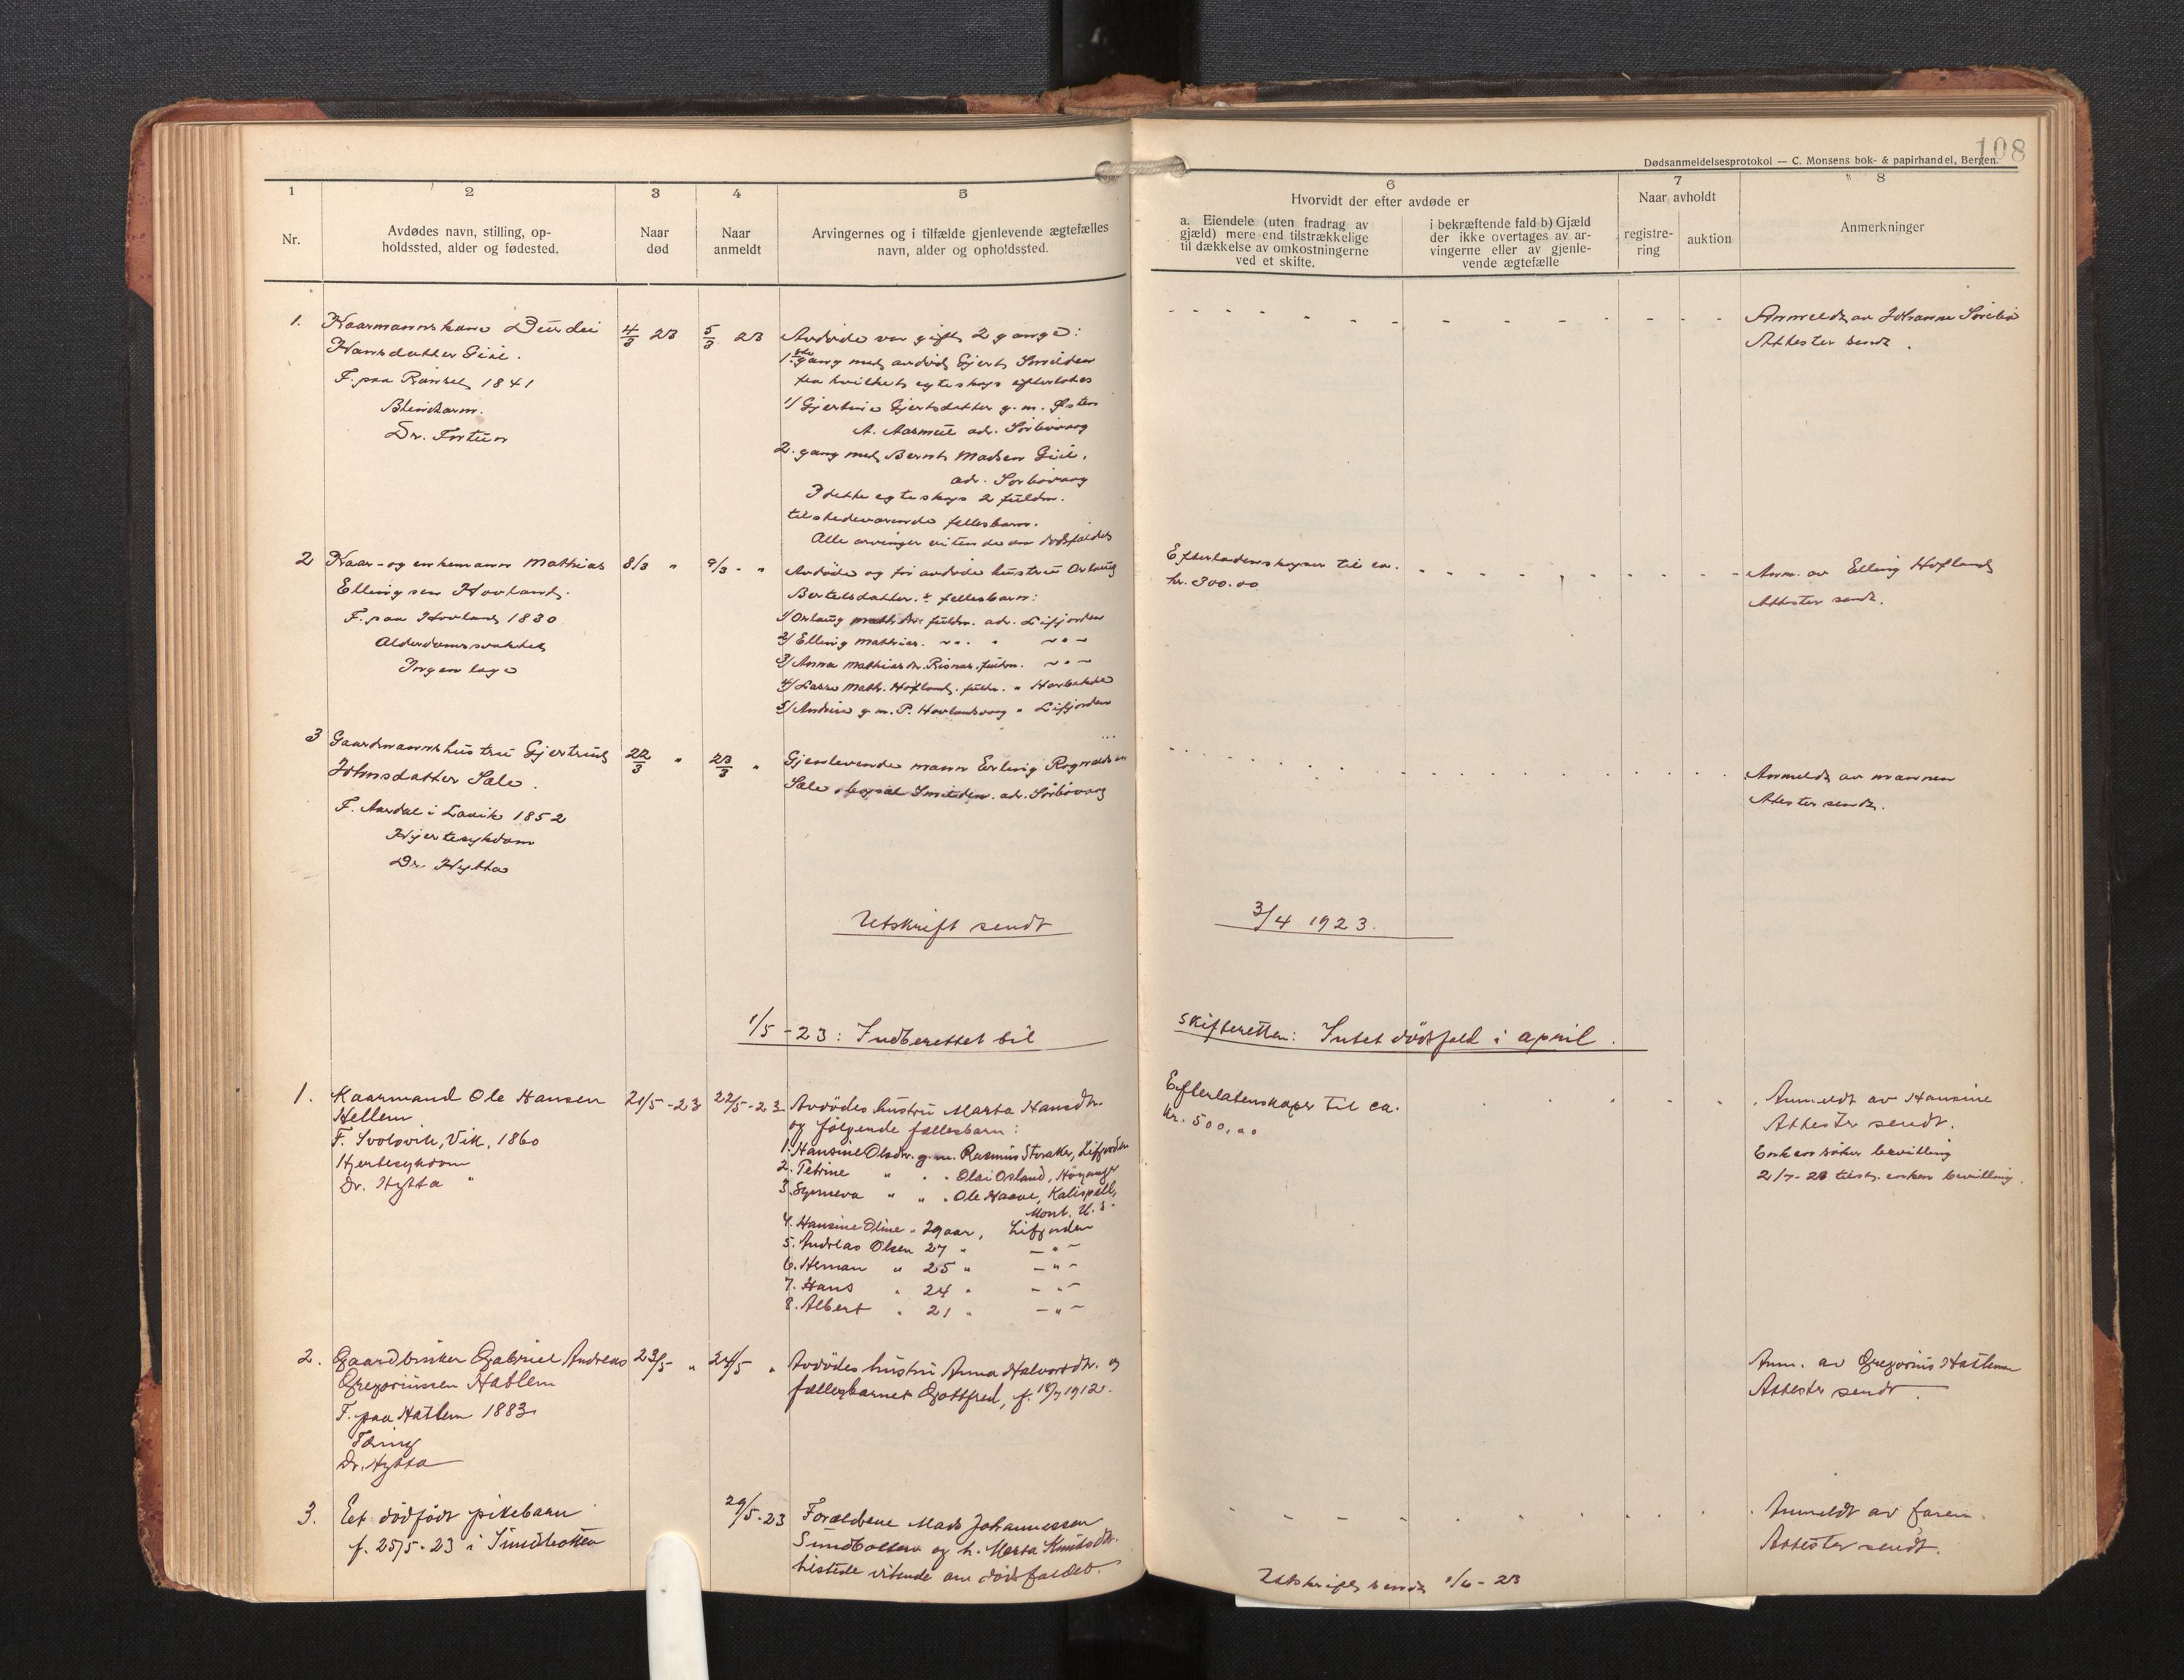 108
Dødsanmeldelsesprotokol — C. Monsens bok- & papirhandel, Bergen.
1
2
3
4
5
6
7
8
Nr.
Avdødes navn, stilling, op-
holdssted, alder og fødested.
Naar
død
Naar
anmeldt
Arvingernes og i tilfælde gjenlevende ægtefælles
navn, alder og opholdssted.
Hvorvidt der efter avdøde er
a. Eiendele (uten fradrag av
gjæld) mere end tilstrækkelige
til dækkelse av omkostningerne
ved et skifte.
i bekræftende fald b) Gjæld
der ikke overtages av ar-
vingerne eller av gjenle-
vende ægtefælle
Naar avholdt
registre-
ring
auktion
Anmerkninger
1. Kaarmannskone Durdei
Hansdatter Giil.
F. paa 1841
Blindtarm.
Dr. Fortun
4/3 23
5/3 23
Avdøde var gift 2 gange:
1ste gang med avdød Gjert Smilden
fra hvilket egteskap efterlates
1/ Gjertine Gjertsdatter g. m. Østen
A. adr. Sörbövaag
2. gang med Bernt Madsen Giil.
adr. Sörbövaag
I dette egteskap 2 fuldm.
tilstedeværende fellesbarn.
Alle arvinger vitende om dødsfaldet
Anmeldt av Johanne
Attester sendt.
2 Kaar- og enkemann Mathias
Ellingsen Hovland.
F. paa Hovland 1830
Alderdomssvakhet
Ingen læge
8/3 "
9/3 - "
Avdøde og før avdøde hustru Orlaug
Bertelsdatter. fellesbarn:
1/ Orlaug fuldm. adr. Lifjorden
2/ Elling Mathias. ~ " ~
3/ Anna Mathiasdr. Risnes. fuldm. ~ " ~
4/ Lasse Math. Hofland. fuldm. "
5/ Andrine g. m. P. Hovlandsvaag " Lifjorden
Efterladenskaper til ca.
kr. 300.00
Anm. av Elling Hofland
Attester sendt.
3 Gaardmannshustru Gjertrud
Johnsdatter Sæle.
F. Aardal i Lavik 1852
Hjertesykdom
Dr. Hytta
22/3 "
23/3 "
Gjenlevende mann Erling Rognaldsen
Sæle adr. Sörbövaag
Anmeldt av mannen
Attester sendt.
Utskrift sendt 3/4 1923.
1/5 - 23: Indberettet til skifteretten: Intet dödsfald i april.
1. Kaarmand Ole Hansen
Hellem
F. Svolsvik, Vik, 1860
Hjertesykdom
Dr. Hytta "
21/5 - 23
22/5 - 23
Avdödes hustru Marta Hansdtr.
og følgende fællesbarn:
1. Hansine Olsdtr. g. m. Rasmus Storaker, Lifjorden
2. Petrine " " " Olai Osland, Höyanger
3. Synneva " " " Ole Haave, Kalispell,
Mont. U. S.
4. Hansine Oline " 29 aar, Lifjorden
5. Andreas Olsen 27 " — " —
6. Herman " 25 " — " —
7. Hans " 24 " — " —
8. Albert " 21 " — " —
Efterlatenskaper til ca.
Kr. 500,00
Anmeldt av Hansine
Attester sendt.
Enken söker bevilling
2/7 - 23 tilst. enken bevilling.
2. Gaardbruker Gabriel Andreas
Gregoriussen Hatlem
F. paa Hatlem 1883
Tæring
Dr. Hytta
23/5 - "
24/5 "
Avdödes hustru Anna Halvorsdtr. og
fællesbarnet Gottfred, f. 18/7 1912.
Anm. av Gregorius Hatlem
Attester sendt.
3. Et dödfödt pikebarn
f. 25/5 - 23 i Sundbotten
29/5 - 23
Forældrene Mads Johannessen
Sundbotten og h. Marta Knutsdtr.
histede vitende om dödsfaldet.
Anmeldt av faren.
Attester sendt.
Utskrift sendt 1/6 - 23